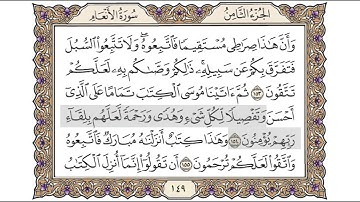 الجزء الثامن سورة الأنعام
وَأَنَّ هَٰذَا صِرَٰطِي مُسْتَقِيمًا فَٱتَّبِعُوهُ ۖ وَلَا تَتَّبِعُوا۟ ٱلسُّبُلَ
فَتَفَرَّقَ بِكُمْ عَن سَبِيلِهِۦ ۚ ذَٰلِكُمْ وَصَّىٰكُم بِهِۦ لَعَلَّكُمْ
تَتَّقُونَ ١٥٣ ثُمَّ ءَاتَيْنَا مُوسَى ٱلْكِتَٰبَ تَمَامًا عَلَى ٱلَّذِىٓ
أَحْسَنَ وَتَفْصِيلًا لِّكُلِّ شَىْءٍ وَهُدًى وَرَحْمَةً لَّعَلَّهُم بِلِقَآءِ
رَبِّهِمْ يُؤْمِنُونَ ١٥٤ وَهَٰذَا كِتَٰبٌ أَنزَلْنَٰهُ مُبَارَكٌ فَٱتَّبِعُوهُ
وَٱتَّقُوا۟ لَعَلَّكُمْ تُرْحَمُونَ ١٥٥ أَن تَقُولُوٓا۟ إِنَّمَآ أُنزِلَ ٱلْكِتَٰبُ
١٤٩